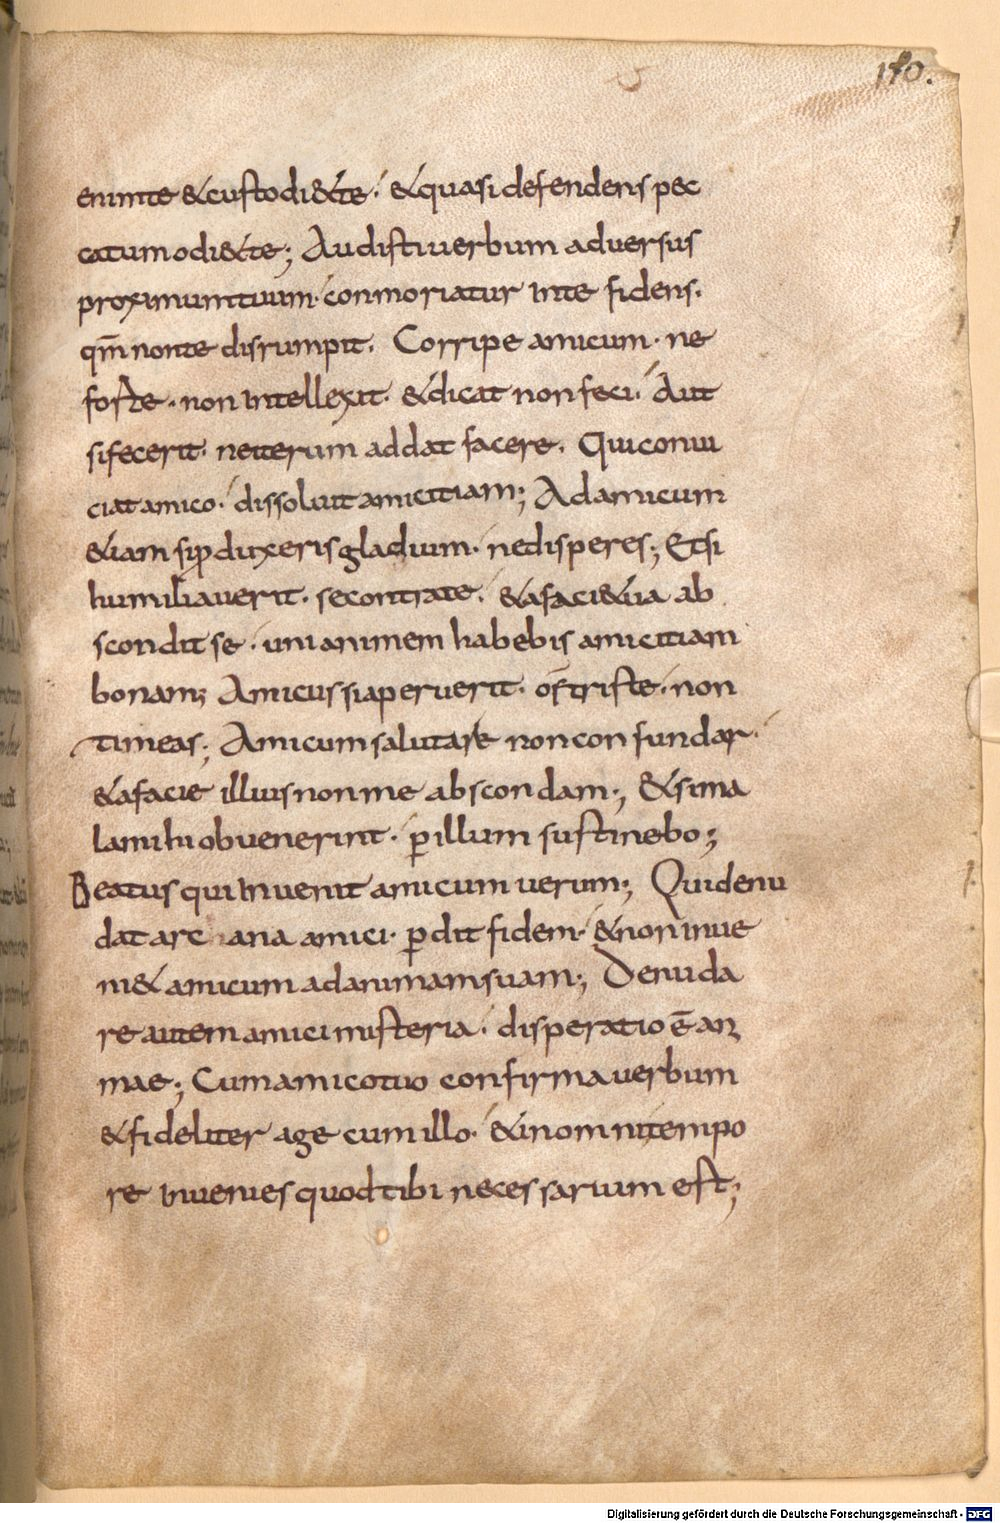 170.
enim te & custodi& te · & quasi defendens pec
catum odi& te; Audisti uerbum aduersus
proximum tuum · conmoriatur in te fidens.
qm̄ non te disrumpit. Corripe amicum · ne
forte · non intellexit · & dicat non feci · Aut
si fecerit · ne iterum addat facere. Qui conui
ciat amico · dissoluit amicitiam; Ad amicum
&iam si ꝓduxeris gladium · ne disperes; Etsi
humiliauerit · se contra te · & a facie tua ab
scondit se · unianimem habebis amicitiam
bonam; Amicus si aperuerit · os triste · non
timeas; Amicum salutare non confundar ·
& a facie illius non me abscondam; & si ma
la mihi obuenerint · ꝑ illum sustinebo;
Beatus qui inuenit amicum uerum; Qui denu
dat arc ana amici · ꝑdit fidem · & non inue
ni& amicum ad animam suam; Denuda
re autem amici misteria · disperatio ē ani
mae; Cum amico tuo confirma uerbum
& fideliter age cum illo · & in omni tempo
re inuenies quod tibi necessarium est;
Digitalisierung gefördert durch die Deutsche Forschungsgemeinschaft - DFG